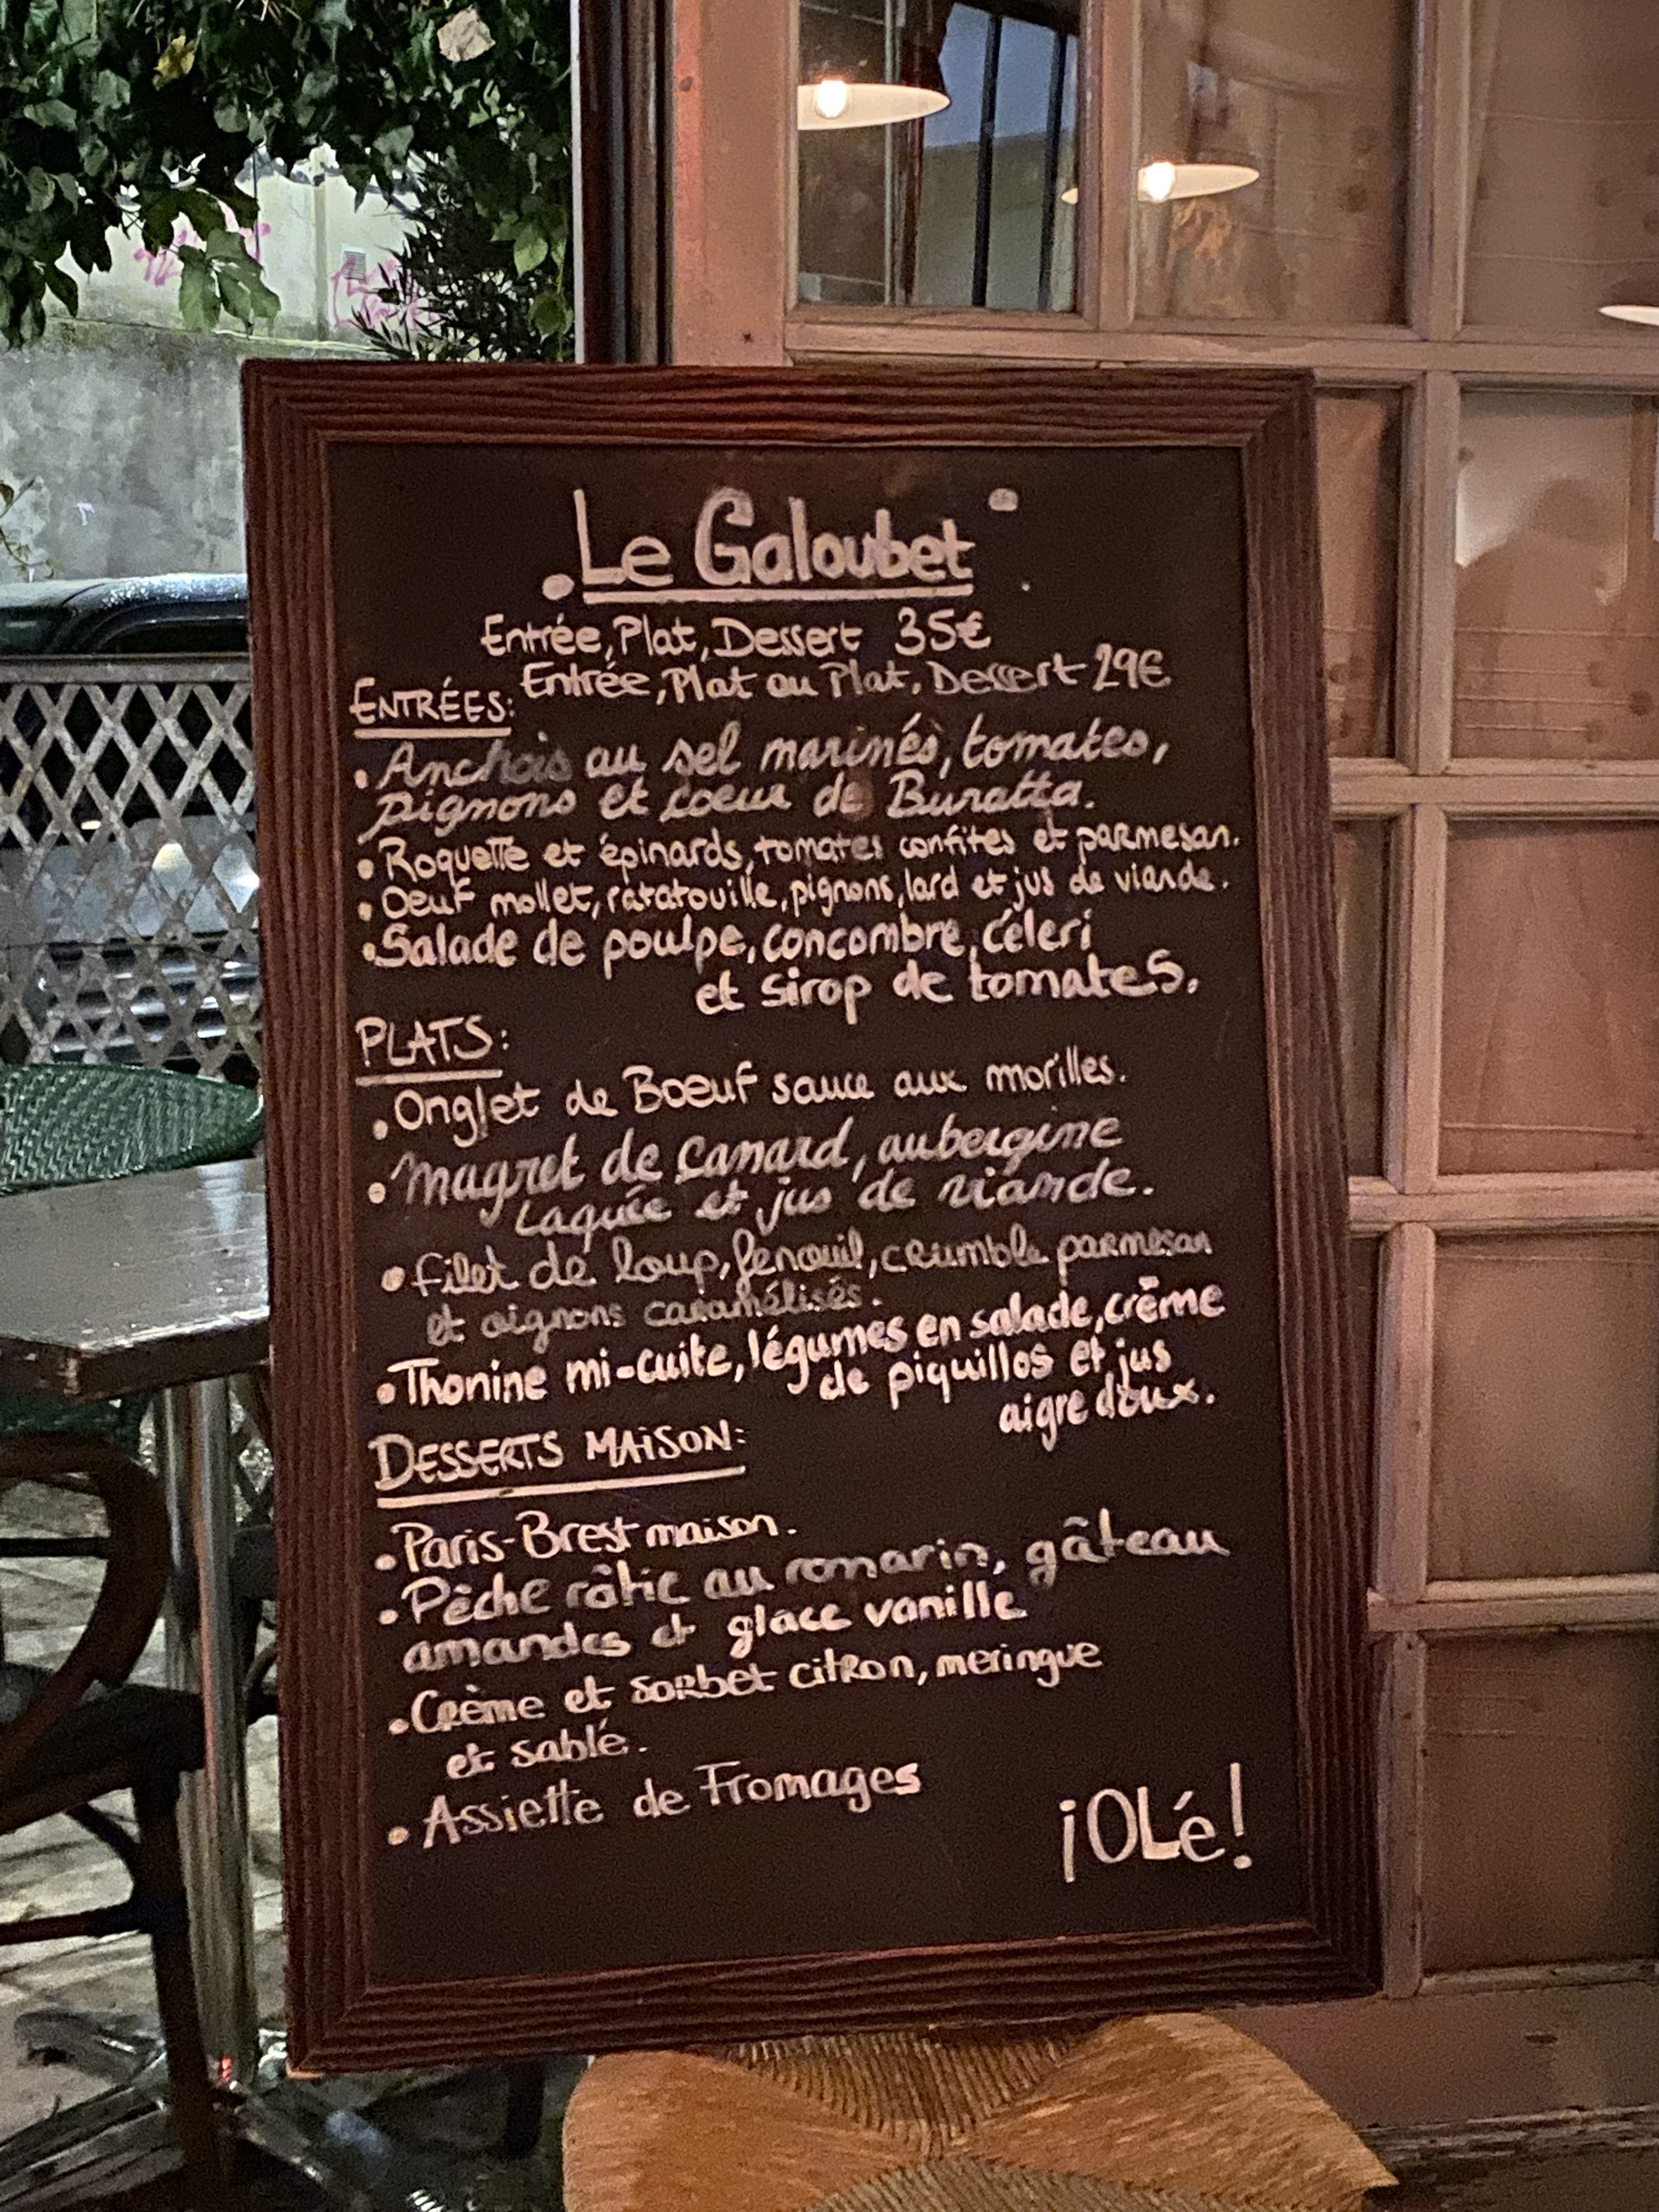 Le Galoubet
Entrée, Plat, Dessert 35€
Entrée, Plat ou Plat, Dessert 29€
ENTRÉES:
• Anchois au sel marinés, tomates,
pignons et coeur de Buratta.
• Roquette et épinards, tomates confites et parmesan.
• Oeuf mollet, ratatouille, pignons, lard et jus de viande.
• Salade de poulpe, concombre, céleri
et sirop de tomates.
PLATS:
• Onglet de Boeuf sauce aux morilles.
• Magret de Canard, aubergine
Laquée et jus de viande.
• Filet de loup, fenouil, crumble parmesan
et oignons caramélisés.
• Thonine mi-cuite, légumes en salade, crème
de piquillos et jus
aigre doux.
DESSERTS MAiSON:
• Paris-Brest maison.
• Pêche rôtie au romarin, gâteau
amandes et glace vanille
• Crème et sorbet citron, meringue
et sablé.
• Assiette de Fromages
¡OLé!